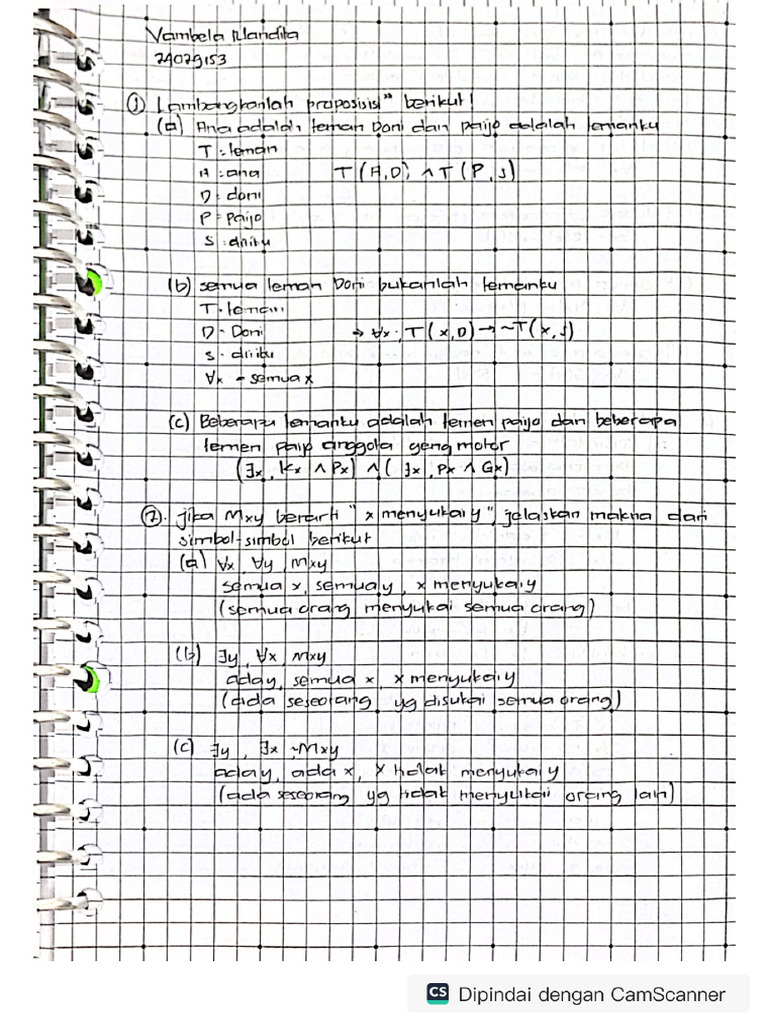 Vambela Nandita
24029153
① Lambangkanlah proposisi" berikut!
(a) Ana adalah teman Doni dan paijo adalah temanku
T : teman
A : ana T(A,D) ∧ T(P,S)
D : doni
P = Paijo
S : diriku
(b) semua teman Doni bukanlah temanku
T · teman
D - Doni → ∀x, T(x,D) → ~T(x,S)
S · diriku
∀x = semua x
(c) Beberapa temanku adalah temen paijo dan beberapa
temen paijo anggota geng motor
(∃x, Kx ∧ Px) ∧ (∃x, Px ∧ Gx)
②. jika Mxy berarti "x menyukai y", jelaskan makna dari
simbol-simbol berikut
(a) ∀x ∀y, Mxy
semua x, semua y, x menyukai y
(semua orang menyukai semua orang)
(b) ∃y, ∀x, Mxy
ada y, semua x, x menyukai y
(ada seseorang yg disukai semua orang)
(c) ∃y, ∃x ~Mxy
ada y, ada x, x tidak menyukai y
(ada seseorang yg tidak menyukai orang lain)
CS Dipindai dengan CamScanner